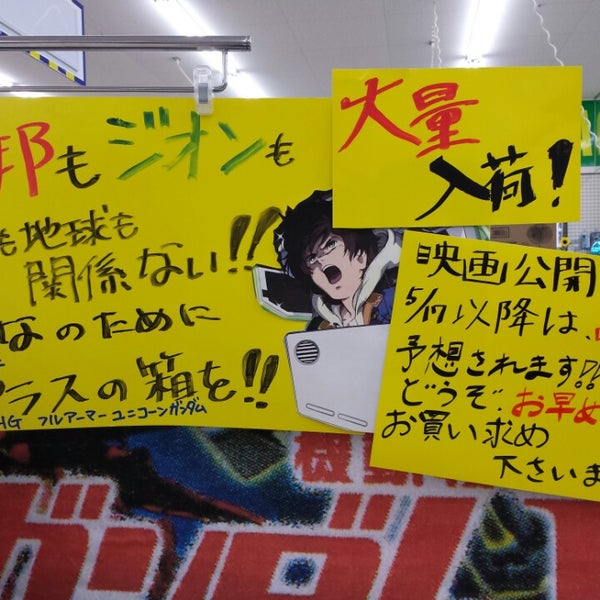 邦もジオンも
も地球も
関係ない!!
なのために
プラスの箱を!!
HG フルアーマー ユニコーンガンダム
大量
入荷!
映画公開
5/17以降は、
予想されます!!
どうぞ、お早め
お買い求め
下さいま
機動
ガンダム